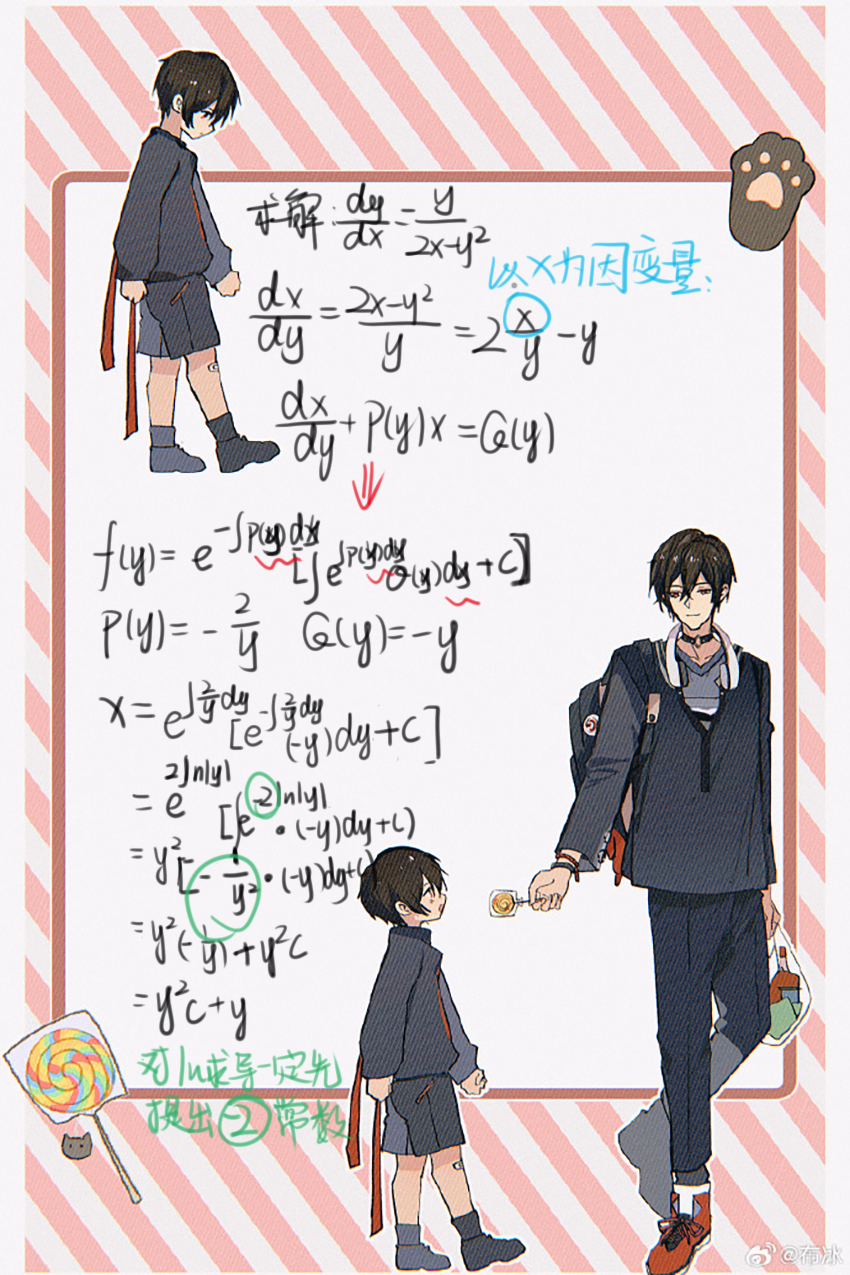 求解: dy/dx = y/(2x-y²)
以x为因变量:
dx/dy = (2x-y²)/y = 2 x/y - y
dx/dy + P(y)x = Q(y)
⇓
f(y) = e^(-∫P(y)dx) [∫e^(∫P(y)dy) Q(y)dy + C]
P(y) = -2/y Q(y) = -y
x = e^(∫2/y dy) [e^(-∫2/y dy) (-y)dy + C]
= e^(2ln|y|) [∫e^(-2ln|y|)·(-y)dy+C)
= y² [- 1/y²·(-y)dy+C)
= y²(-1/y) + y²C
= y²C + y
对ln求导一定先
提出②常数
@布冰